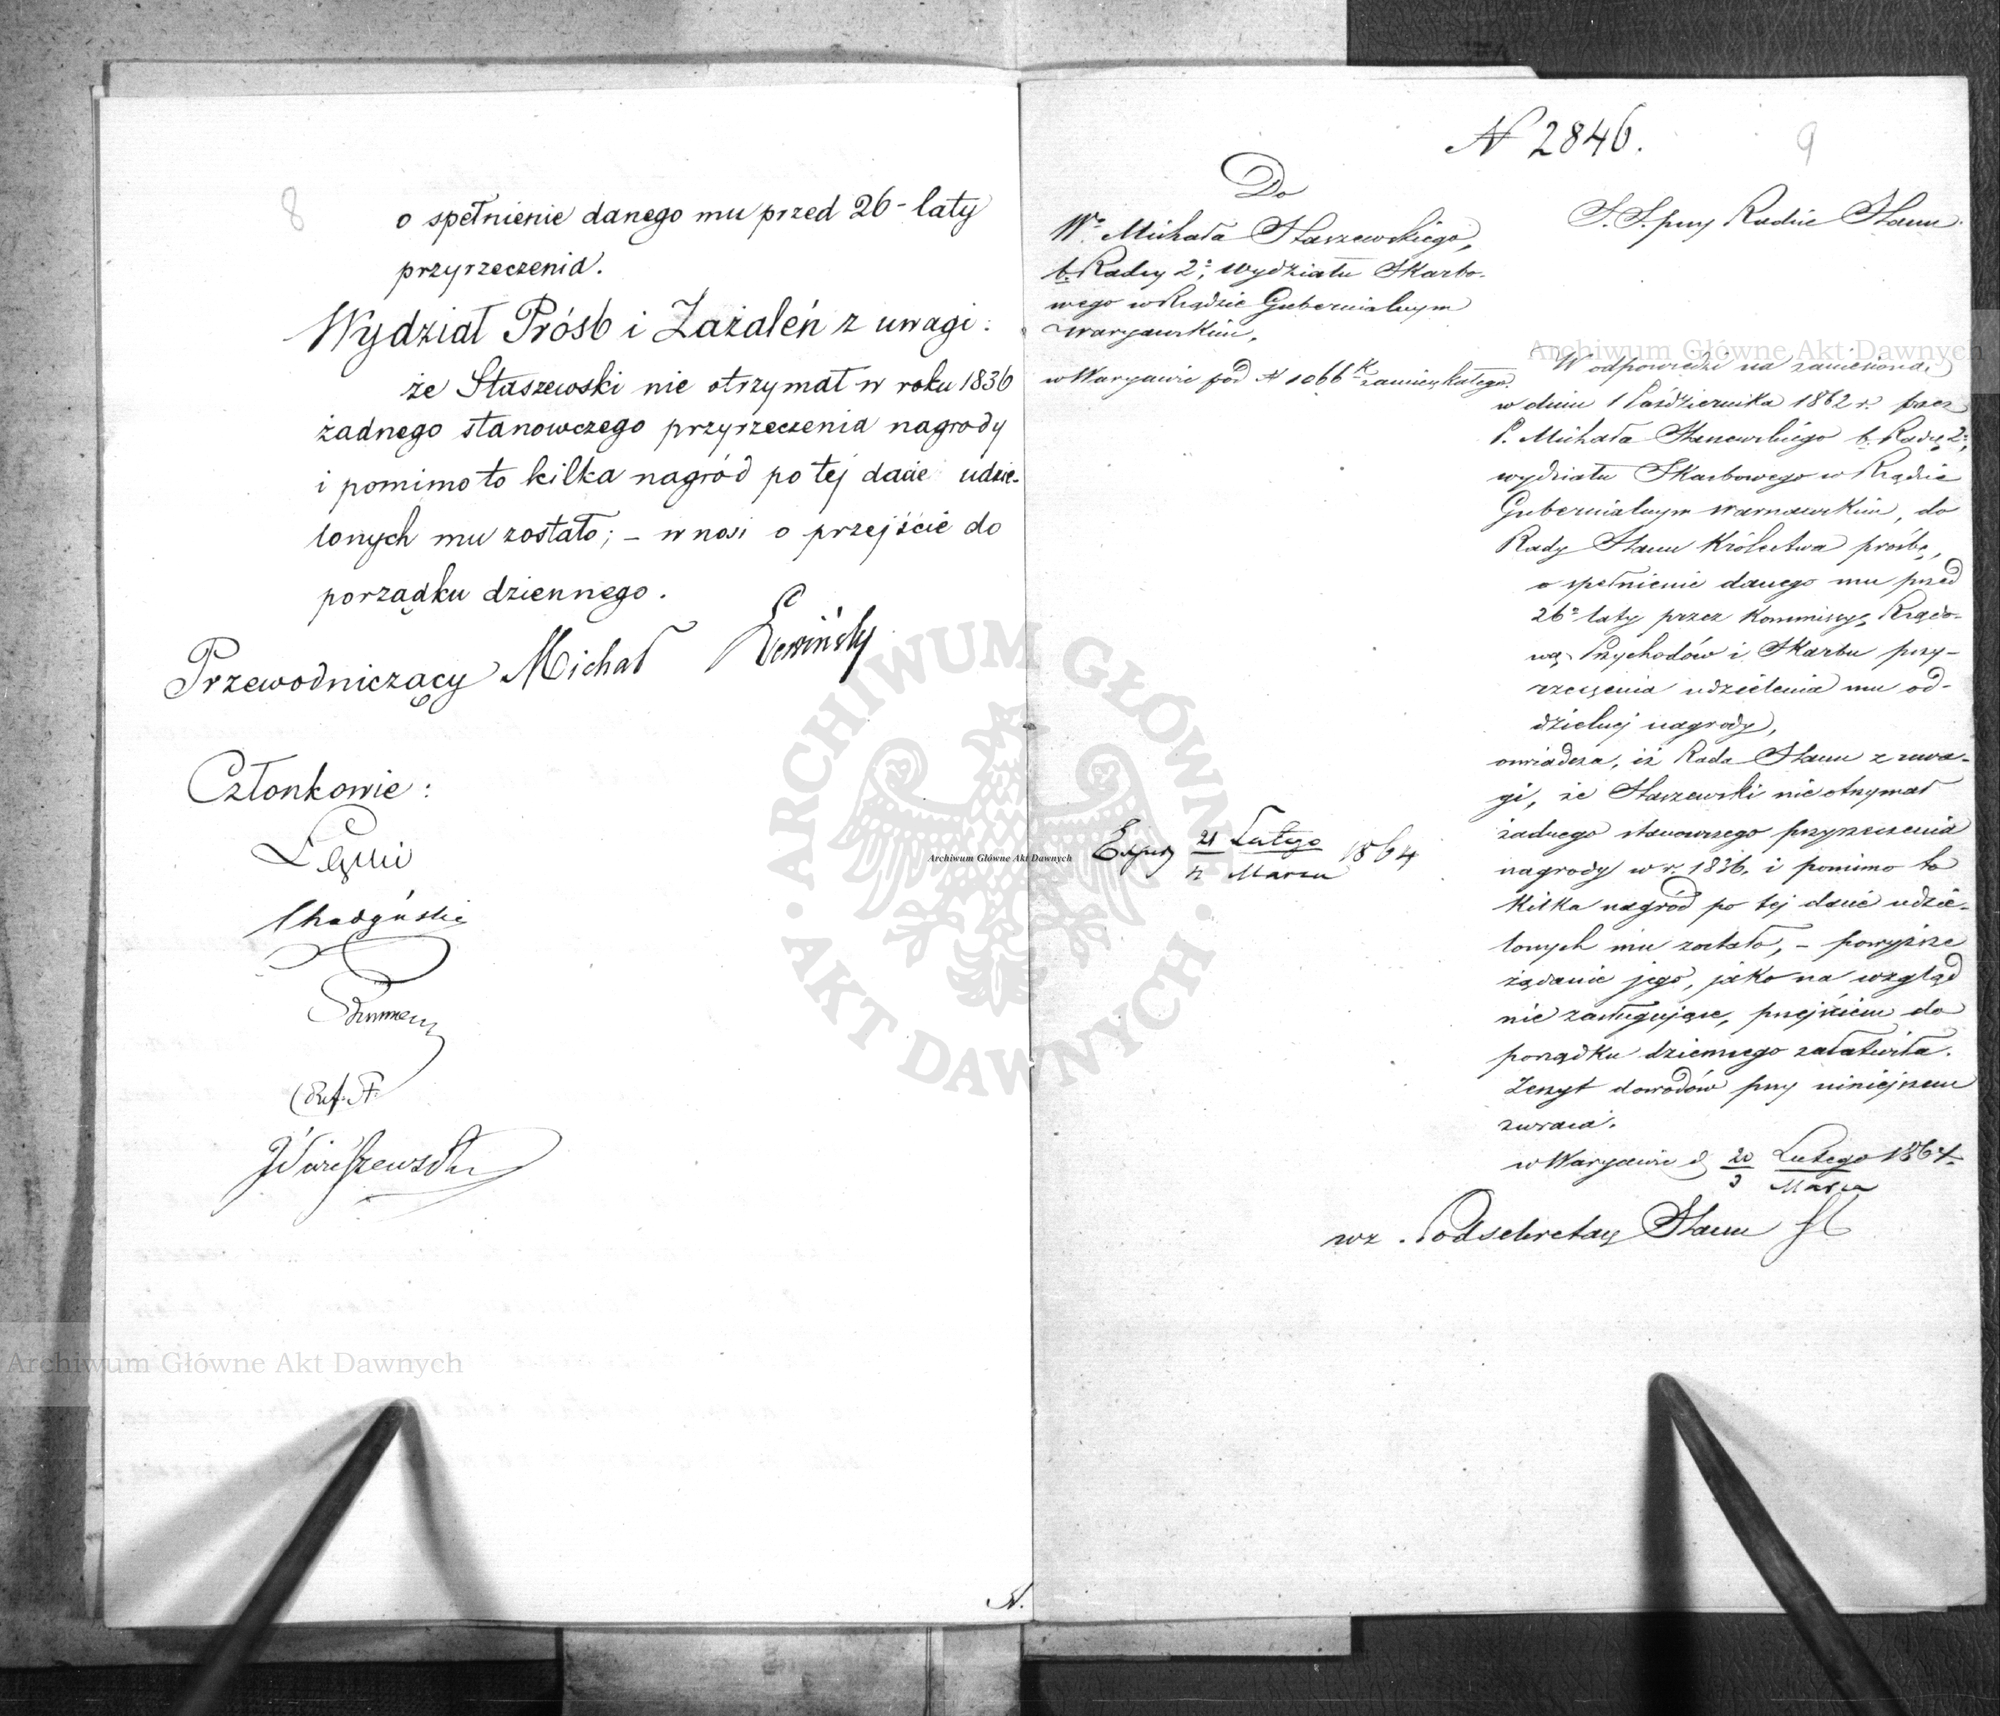 8
o spełnienie danego mu przed 26-laty
przyrzeczenia.
Wydział Próśb i Zażaleń z uwagi:
że Staszewski nie otrzymał w roku 1836
żadnego stanowczego przyrzeczenia nagrody
i pomimo to kilka nagród po tej dacie udzie-
lonych mu zostało; – wnosi o przejście do
porządku dziennego.
Przewodniczący Michał Lewiński
Członkowie:
Łęski
(Ref. St.
N 2846.
9
Do
Wo Michała Staszewskiego,
b. Radcy 2o, wydziału Skarbo-
wego w Rządzie Gubernialnym
Warszawskim,
w Warszawie pod N 1066 K zamieszkałego.
S. S. przy Radzie Stanu.
W odpowiedzi na zaniesioną
w dniu 1 Października 1862 r. przez
P. Michała Staszewskiego b. Radcę 2o,
wydziału Skarbowego w Rządzie
Gubernialnym Warszawskim, do
Rady Stanu Królestwa prośbę,
o spełnienie danego mu przed
26o laty przez Kommissyę Rządo-
wą Przychodów i Skarbu przy-
rzeczenia udzielenia mu od-
dzielnej nagrody,
oświadcza, iż Rada Stanu z uwa-
gi, że Staszewski nie otrzymał
żadnego stanowczego przyrzeczenia
nagrody w r. 1836, i pomimo to
kilka nagród po tej dacie udzie-
lonych mu zostało, – powyższe
żądanie jego, jako na wzgląd
nie zasługujące, przejściem do
porządku dziennego załatwiła.
Zeszyt dowodów przy niniejszem
zwraca.
w Warszawie d. 20/3 Lutego/Marca 1864.
wz. Podsekretarz Stanu
21 Lutego / 4 Marca 1864
Archiwum Główne Akt Dawnych
Archiwum Główne Akt Dawnych
Archiwum Główne Akt Dawnych
ARCHIWUM GŁÓWNE
AKT DAWNYCH